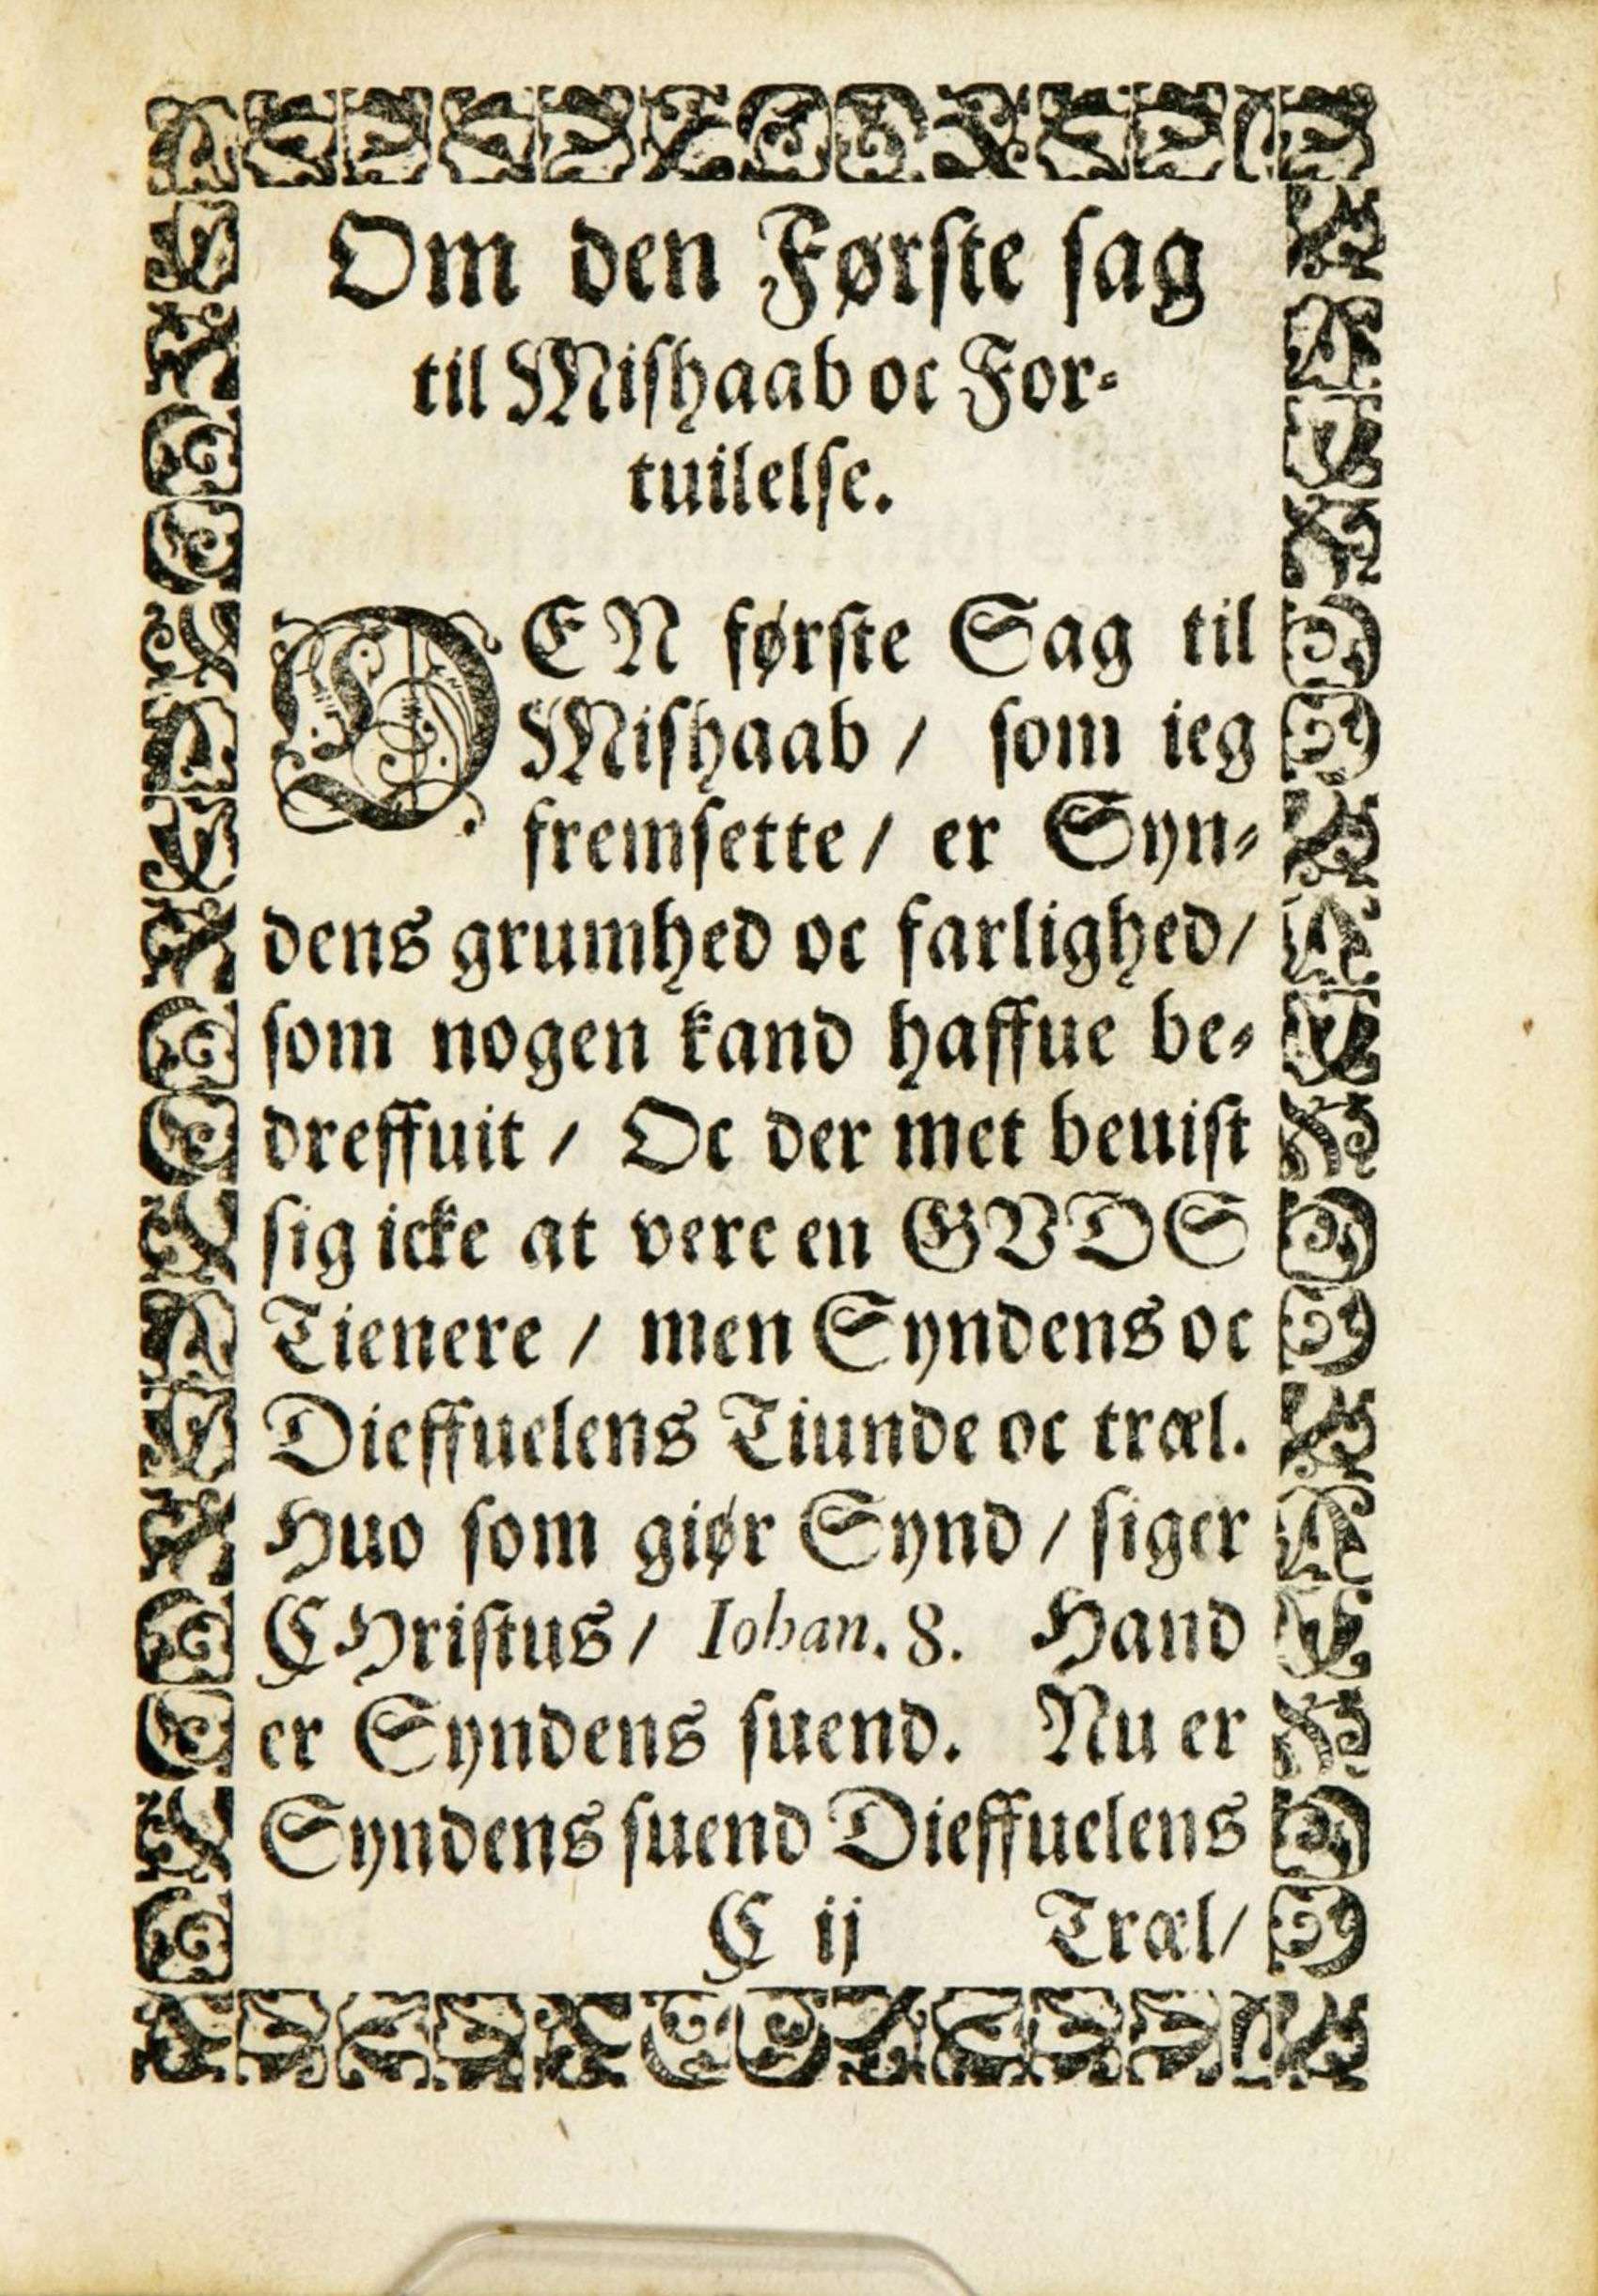 Om den Første sag
til Mishaab oc For-
tuilelse.
DEN første Sag til
Mishaab / som ieg
fremsette / er Syn-
dens grumhed oc farlighed /
som nogen kand haffue be-
dreffuit / Oc der met beuist
sig icke at vere en GVDS
Tienere / men Syndens oc
Dieffuelens Tiunde oc træl.
Huo som giør Synd / siger
CHristus / Iohan. 8. Hand
er Syndens suend. Nu er
Syndens suend Dieffuelens
C ij Træl /